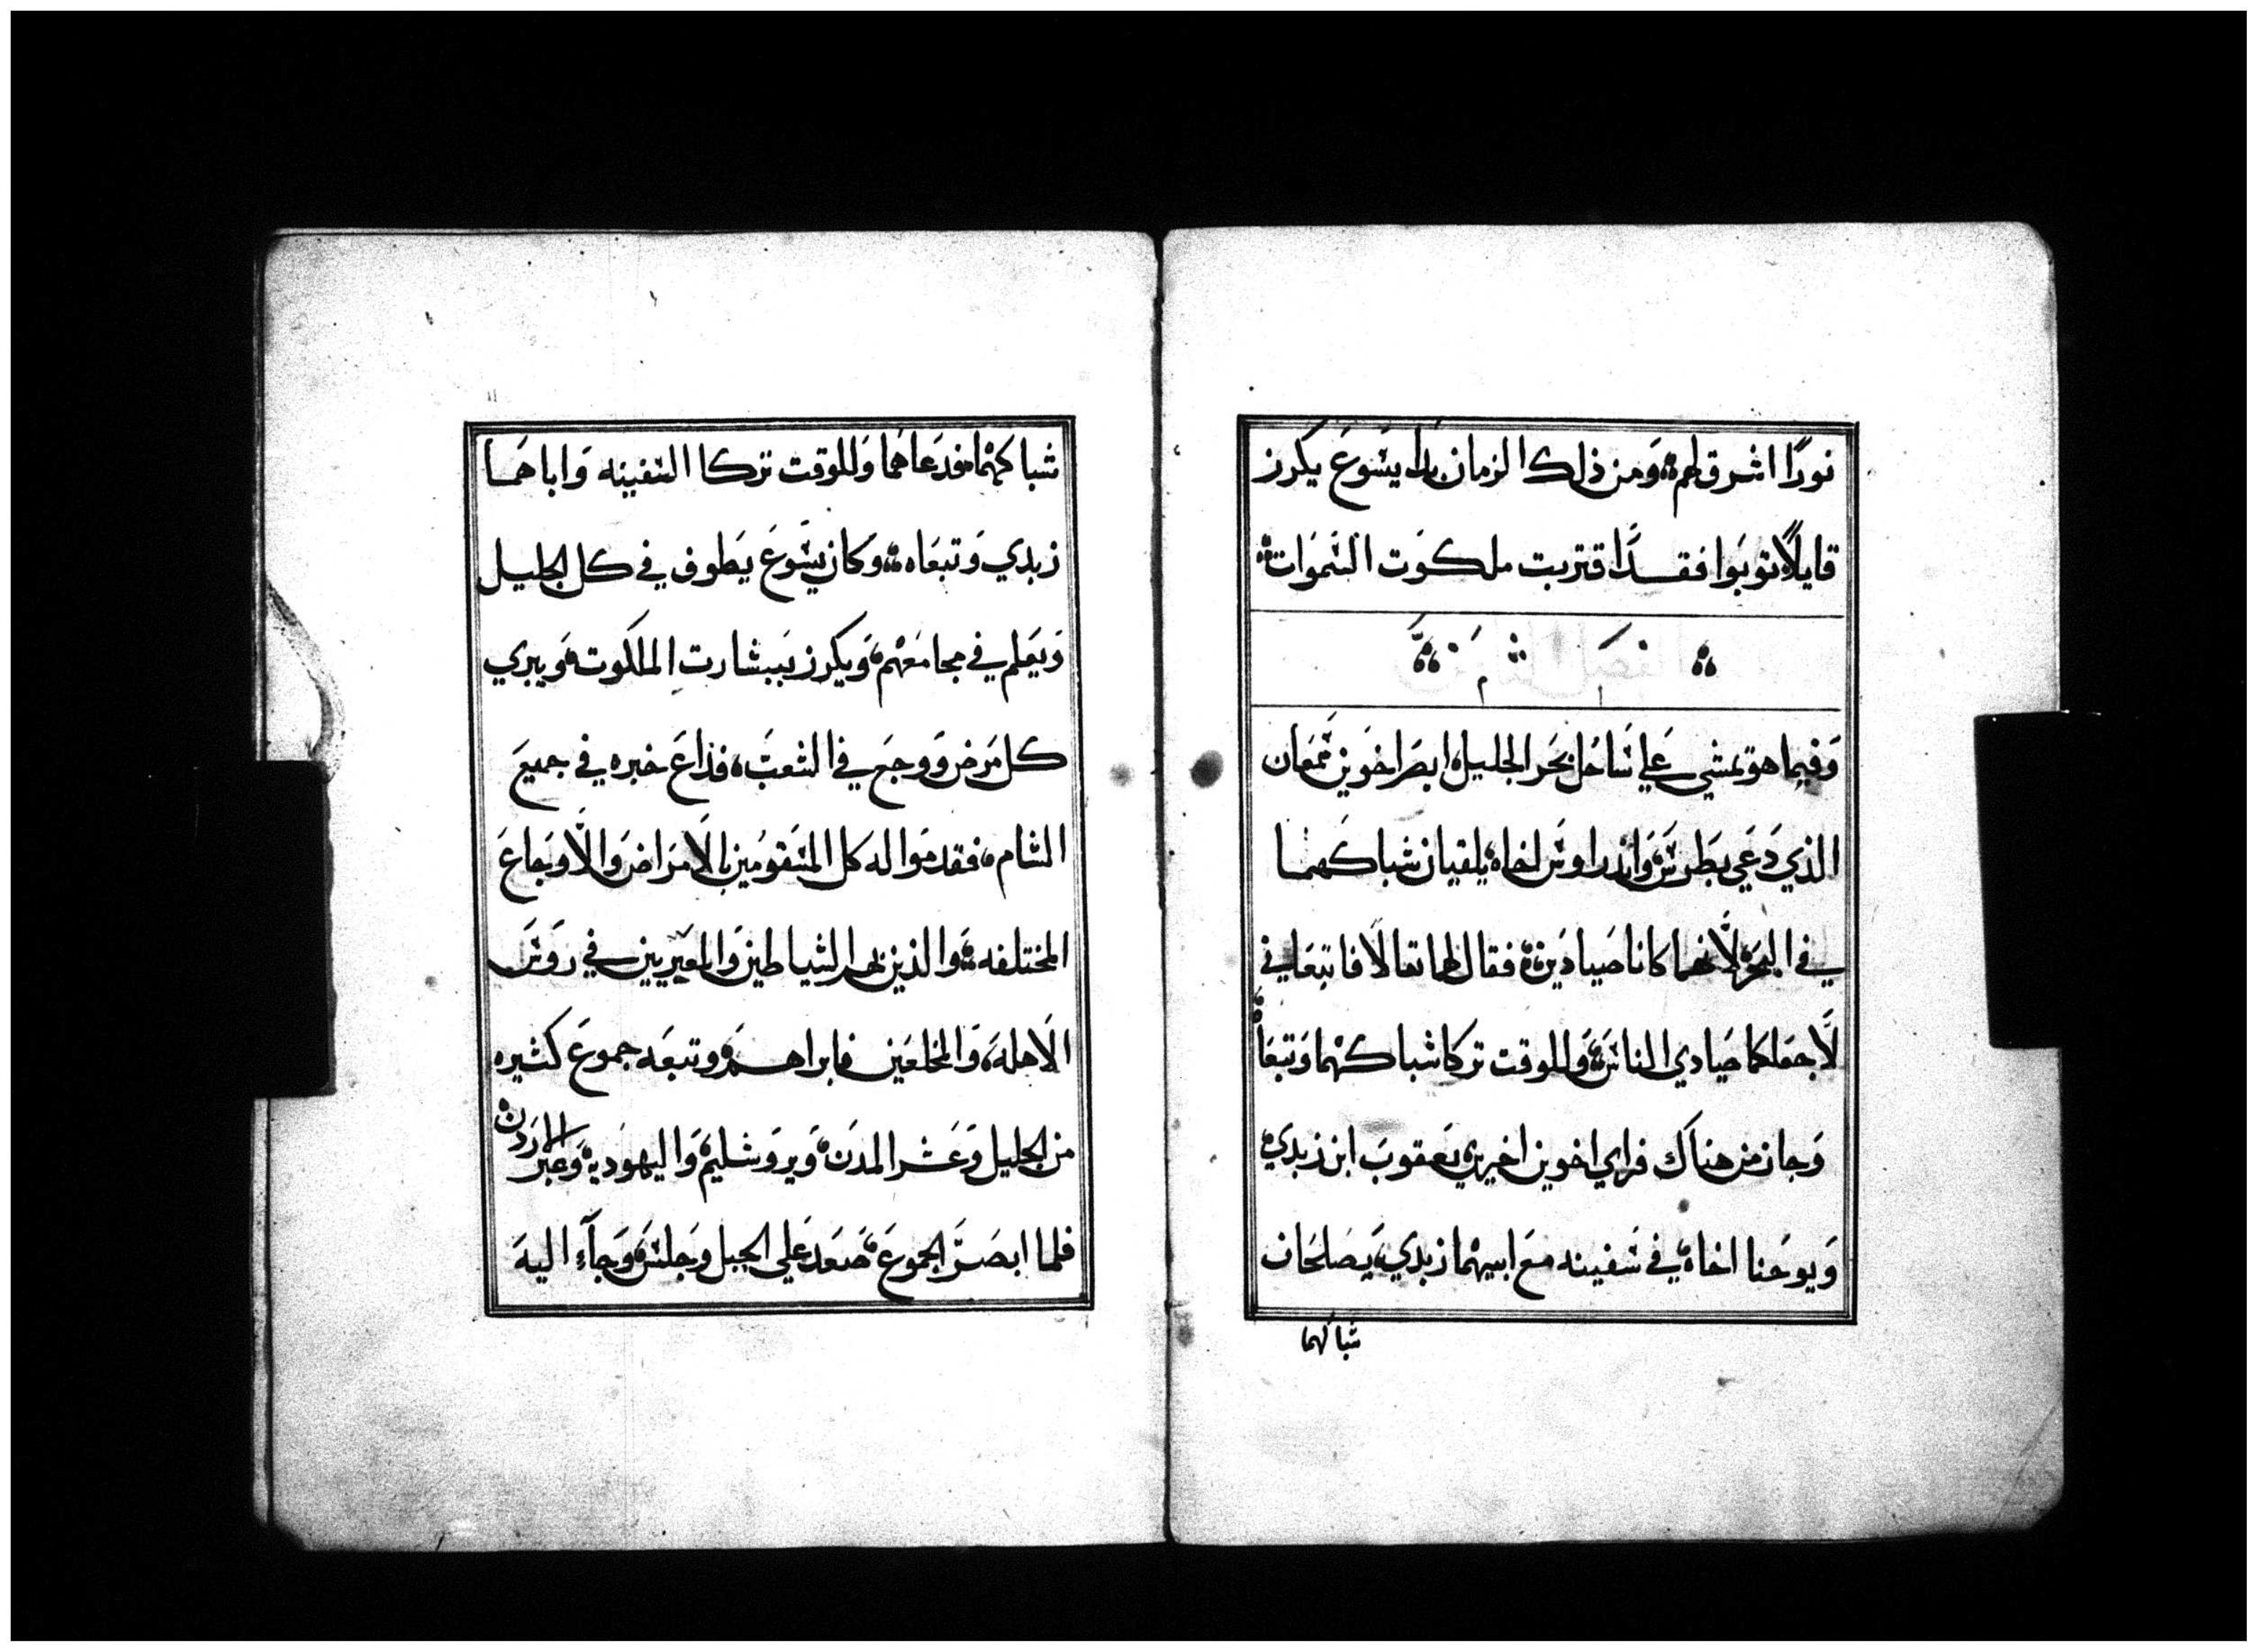 نورًا اشرق لهم، ومن ذلك الزمان بدا يسوع يكرز
قايلًا توبوا فقد اقتربت ملكوت السموات
وفيما هو يمشي علي ساحل بحر الجليل ابصر اخوين سمعان
الذي دعي بطرس، واندراوس اخاه، يلقيان شباكهما
في البحر لانهما كانا صيادين، فقال لهما تعالا فاتبعاني
لاجعلكما صيادي الناس، وللوقت تركا شباكهما وتبعاه
وجاز من هناك فراي اخوين اخيرين يعقوب ابن زبدي
ويوحنا اخاه، في سفينه مع ابيهما زبدي، يصلحان
شباكهما
شباكهما فدعاهما وللوقت تركا السفينه واباهما
زبدي وتبعاه، وكان يسوع يطوف في كل الجليل
ويعلم في مجامعهم، ويكرز ببشارت الملكوت، ويبري
كل مرض ووجع في الشعب، فذاع خبره في جميع
الشام، فقدموا له كل المسقومين بالامراض والاوجاع
المختلفه، والذين بهم الشياطين والمعتريين في روس
الاهله، والمخلعين فابراهم، وتبعه جموع كثيره
من الجليل وعشر المدن، ويروشليم، واليهوديه، وعبر الاردن
فلما ابصر الجموع، صعد علي الجبل وجلس، وجآء اليه